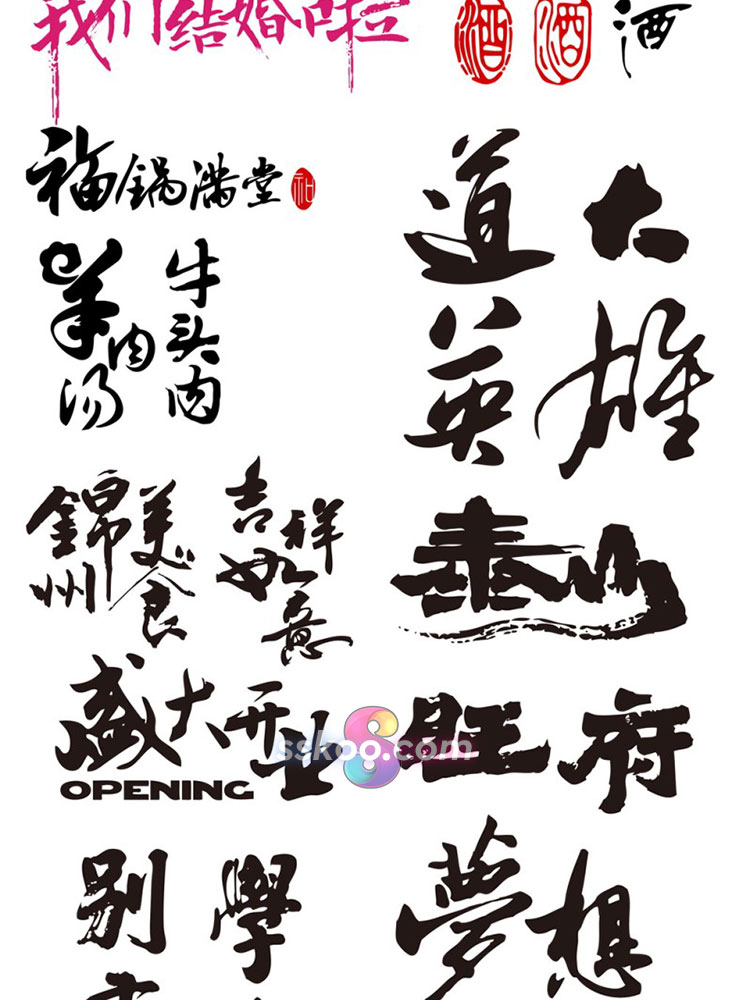 我们结婚啦
酒 酒 酒
福锅满堂
道 大
羊肉汤
牛头肉
英 雄
錦州
美食
吉祥
如意
泰山
盛大开业
OPENING
sskoo.com
旺 府
别 學
夢想